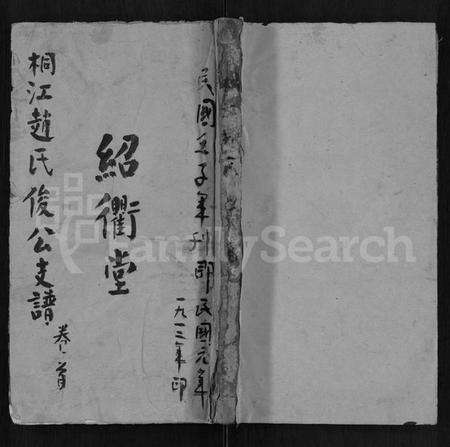 民國壬子年刊即民國元年
一九一二年印
紹衢堂
桐江趙氏俊公支譜
卷首
FamilySearch